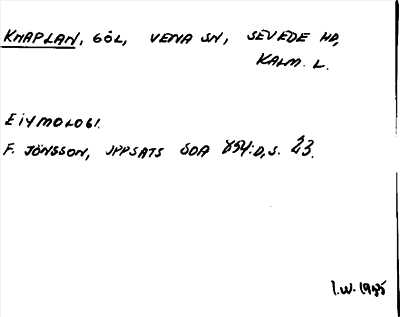 KNAPLAN, GÖL, VENA SN, SEVEDE HD,
KALM. L.
ETYMOLOGI.
F. JÖNSSON, UPPSATS ÖDA 854:D, S. 23.
I.W. 1955